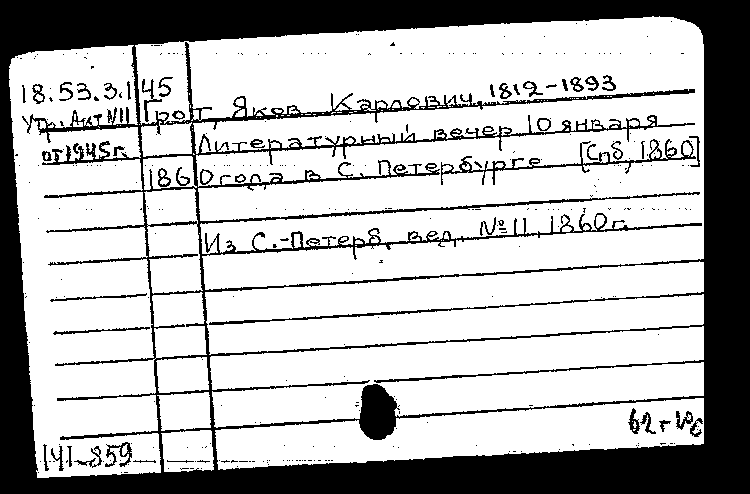 18.53.3.145
Грот, Яков Карлович, 1812-1893
Утр. Акт №11
от 1945 г.
Литературный вечер 10 января
1860 года в С. Петербурге [Спб, 1860]
Из С.-Петерб. вед. №11, 1860 г.
62 г
141-859